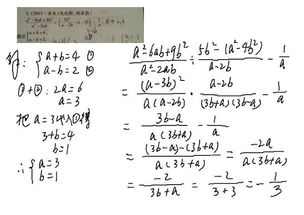 解: { a+b=4 ①
a-b=2 ②
①+②: 2a=6
a=3
把 a=3代入①得
3+b=4
b=1
∴ { a=3
b=1
(a²-6ab+9b²)/(a²-2ab) ÷ (5b²-(a²-4b²))/(a-2b) - 1/a
= (a-3b)²/(a(a-2b)) · (a-2b)/((3b+a)(3b-a)) - 1/a
= (3b-a)/(a(3b+a)) - 1/a
= ((3b-a)-(3b+a))/(a(3b+a)) = -2a/(a(3b+a))
= -2/(3b+a) = -2/(3+3) = -1/3